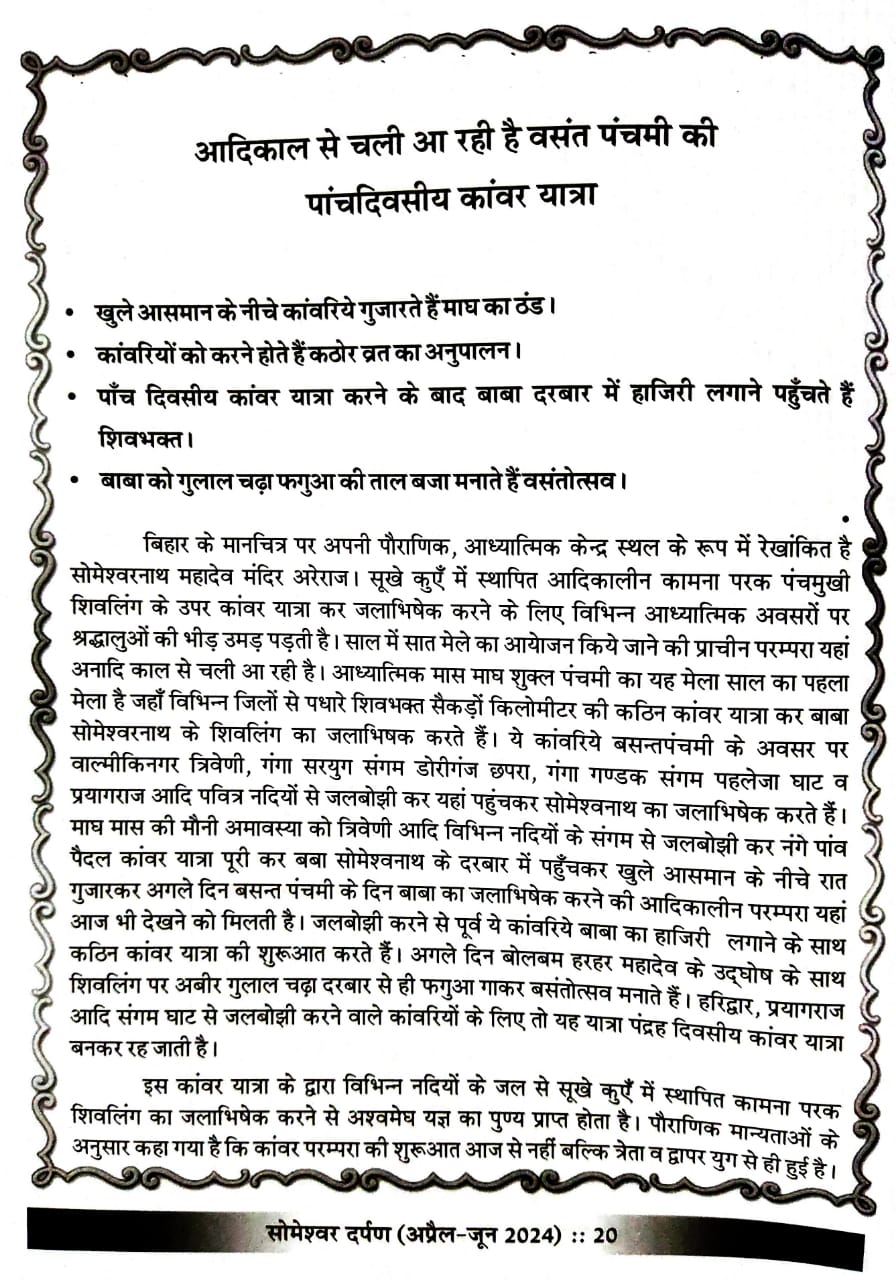 आदिकाल से चली आ रही है वसंत पंचमी की
पांचदिवसीय कांवर यात्रा
• खुले आसमान के नीचे कांवरिये गुजारते हैं माघ का ठंड।
• कांवरियों को करने होते हैं कठोर व्रत का अनुपालन।
• पाँच दिवसीय कांवर यात्रा करने के बाद बाबा दरबार में हाजिरी लगाने पहुँचते हैं
शिवभक्त।
• बाबा को गुलाल चढ़ा फगुआ की ताल बजा मनाते हैं वसंतोत्सव।
बिहार के मानचित्र पर अपनी पौराणिक, आध्यात्मिक केन्द्र स्थल के रूप में रेखांकित है
सोमेश्वरनाथ महादेव मंदिर अरेराज। सूखे कुएँ में स्थापित आदिकालीन कामना परक पंचमुखी
शिवलिंग के उपर कांवर यात्रा कर जलाभिषेक करने के लिए विभिन्न आध्यात्मिक अवसरों पर
श्रद्धालुओं की भीड़ उमड़ पड़ती है। साल में सात मेले का आयेाजन किये जाने की प्राचीन परम्परा यहां
अनादि काल से चली आ रही है। आध्यात्मिक मास माघ शुक्ल पंचमी का यह मेला साल का पहला
मेला है जहाँ विभिन्न जिलों से पधारे शिवभक्त सैकड़ों किलोमीटर की कठिन कांवर यात्रा कर बाबा
सोमेश्वरनाथ के शिवलिंग का जलाभिषक करते हैं। ये कांवरिये बसन्तपंचमी के अवसर पर
वाल्मीकिनगर त्रिवेणी, गंगा सरयुग संगम डोरीगंज छपरा, गंगा गण्डक संगम पहलेजा घाट व
प्रयागराज आदि पवित्र नदियों से जलबोझी कर यहां पहुंचकर सोमेश्वनाथ का जलाभिषेक करते हैं।
माघ मास की मौनी अमावस्या को त्रिवेणी आदि विभिन्न नदियों के संगम से जलबोझी कर नंगे पांव
पैदल कांवर यात्रा पूरी कर बबा सोमेश्वनाथ के दरबार में पहुँचकर खुले आसमान के नीचे रात
गुजारकर अगले दिन बसन्त पंचमी के दिन बाबा का जलाभिषेक करने की आदिकालीन परम्परा यहां
आज भी देखने को मिलती है। जलबोझी करने से पूर्व ये कांवरिये बाबा का हाजिरी लगाने के साथ
कठिन कांवर यात्रा की शुरूआत करते हैं। अगले दिन बोलबम हरहर महादेव के उद्घोष के साथ
शिवलिंग पर अबीर गुलाल चढ़ा दरबार से ही फगुआ गाकर बसंतोत्सव मनाते हैं। हरिद्वार, प्रयागराज
आदि संगम घाट से जलबोझी करने वाले कांवरियों के लिए तो यह यात्रा पंद्रह दिवसीय कांवर यात्रा
बनकर रह जाती है।
इस कांवर यात्रा के द्वारा विभिन्न नदियों के जल से सूखे कुएँ में स्थापित कामना परक
शिवलिंग का जलाभिषेक करने से अश्वमेघ यज्ञ का पुण्य प्राप्त होता है। पौराणिक मान्यताओं के
अनुसार कहा गया है कि कांवर परम्परा की शुरूआत आज से नहीं बल्कि त्रेता व द्वापर युग से ही हुई है।
सोमेश्वर दर्पण (अप्रैल-जून 2024) :: 20